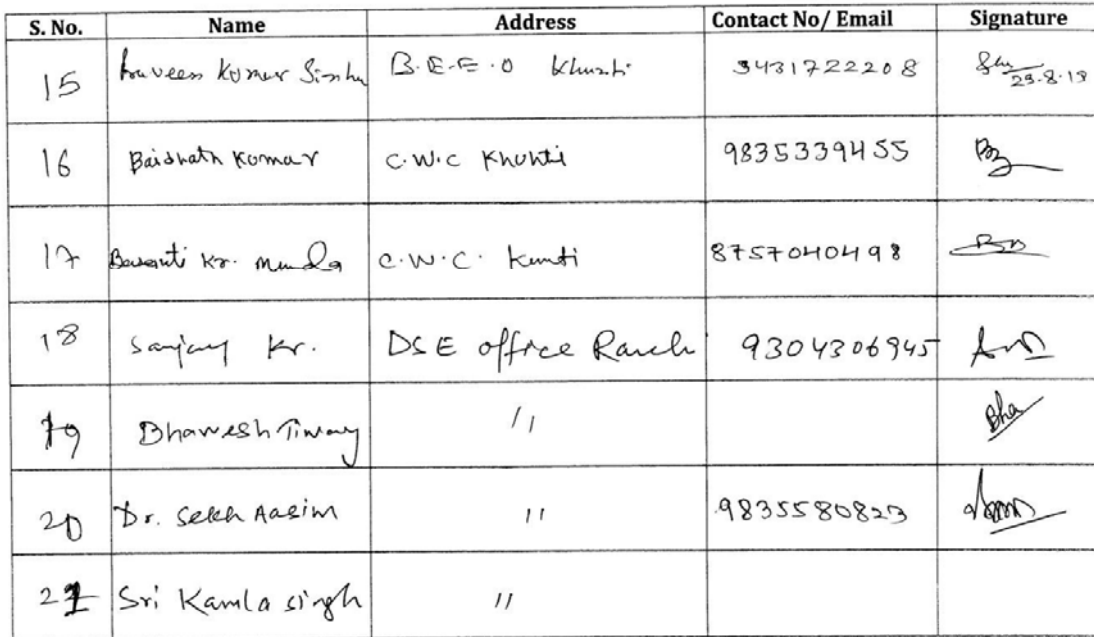 S. No. Name Address Contact No/ Email Signature
15 Praveen Kumar Sinha B.E.E.O Khunti 9431722208 29.8.19
16 Baidnath Kumar C.W.C Khunti 9835339455
17 Basanti Kr. Munda C.W.C. Kunti 8757040498
18 Sanjay Kr. DSE office Ranchi 9304306945
19 Bhawesh Tiwary // Bha
20 Dr. Sekh Aasim // 9835580823
21 Sri Kamla Singh //